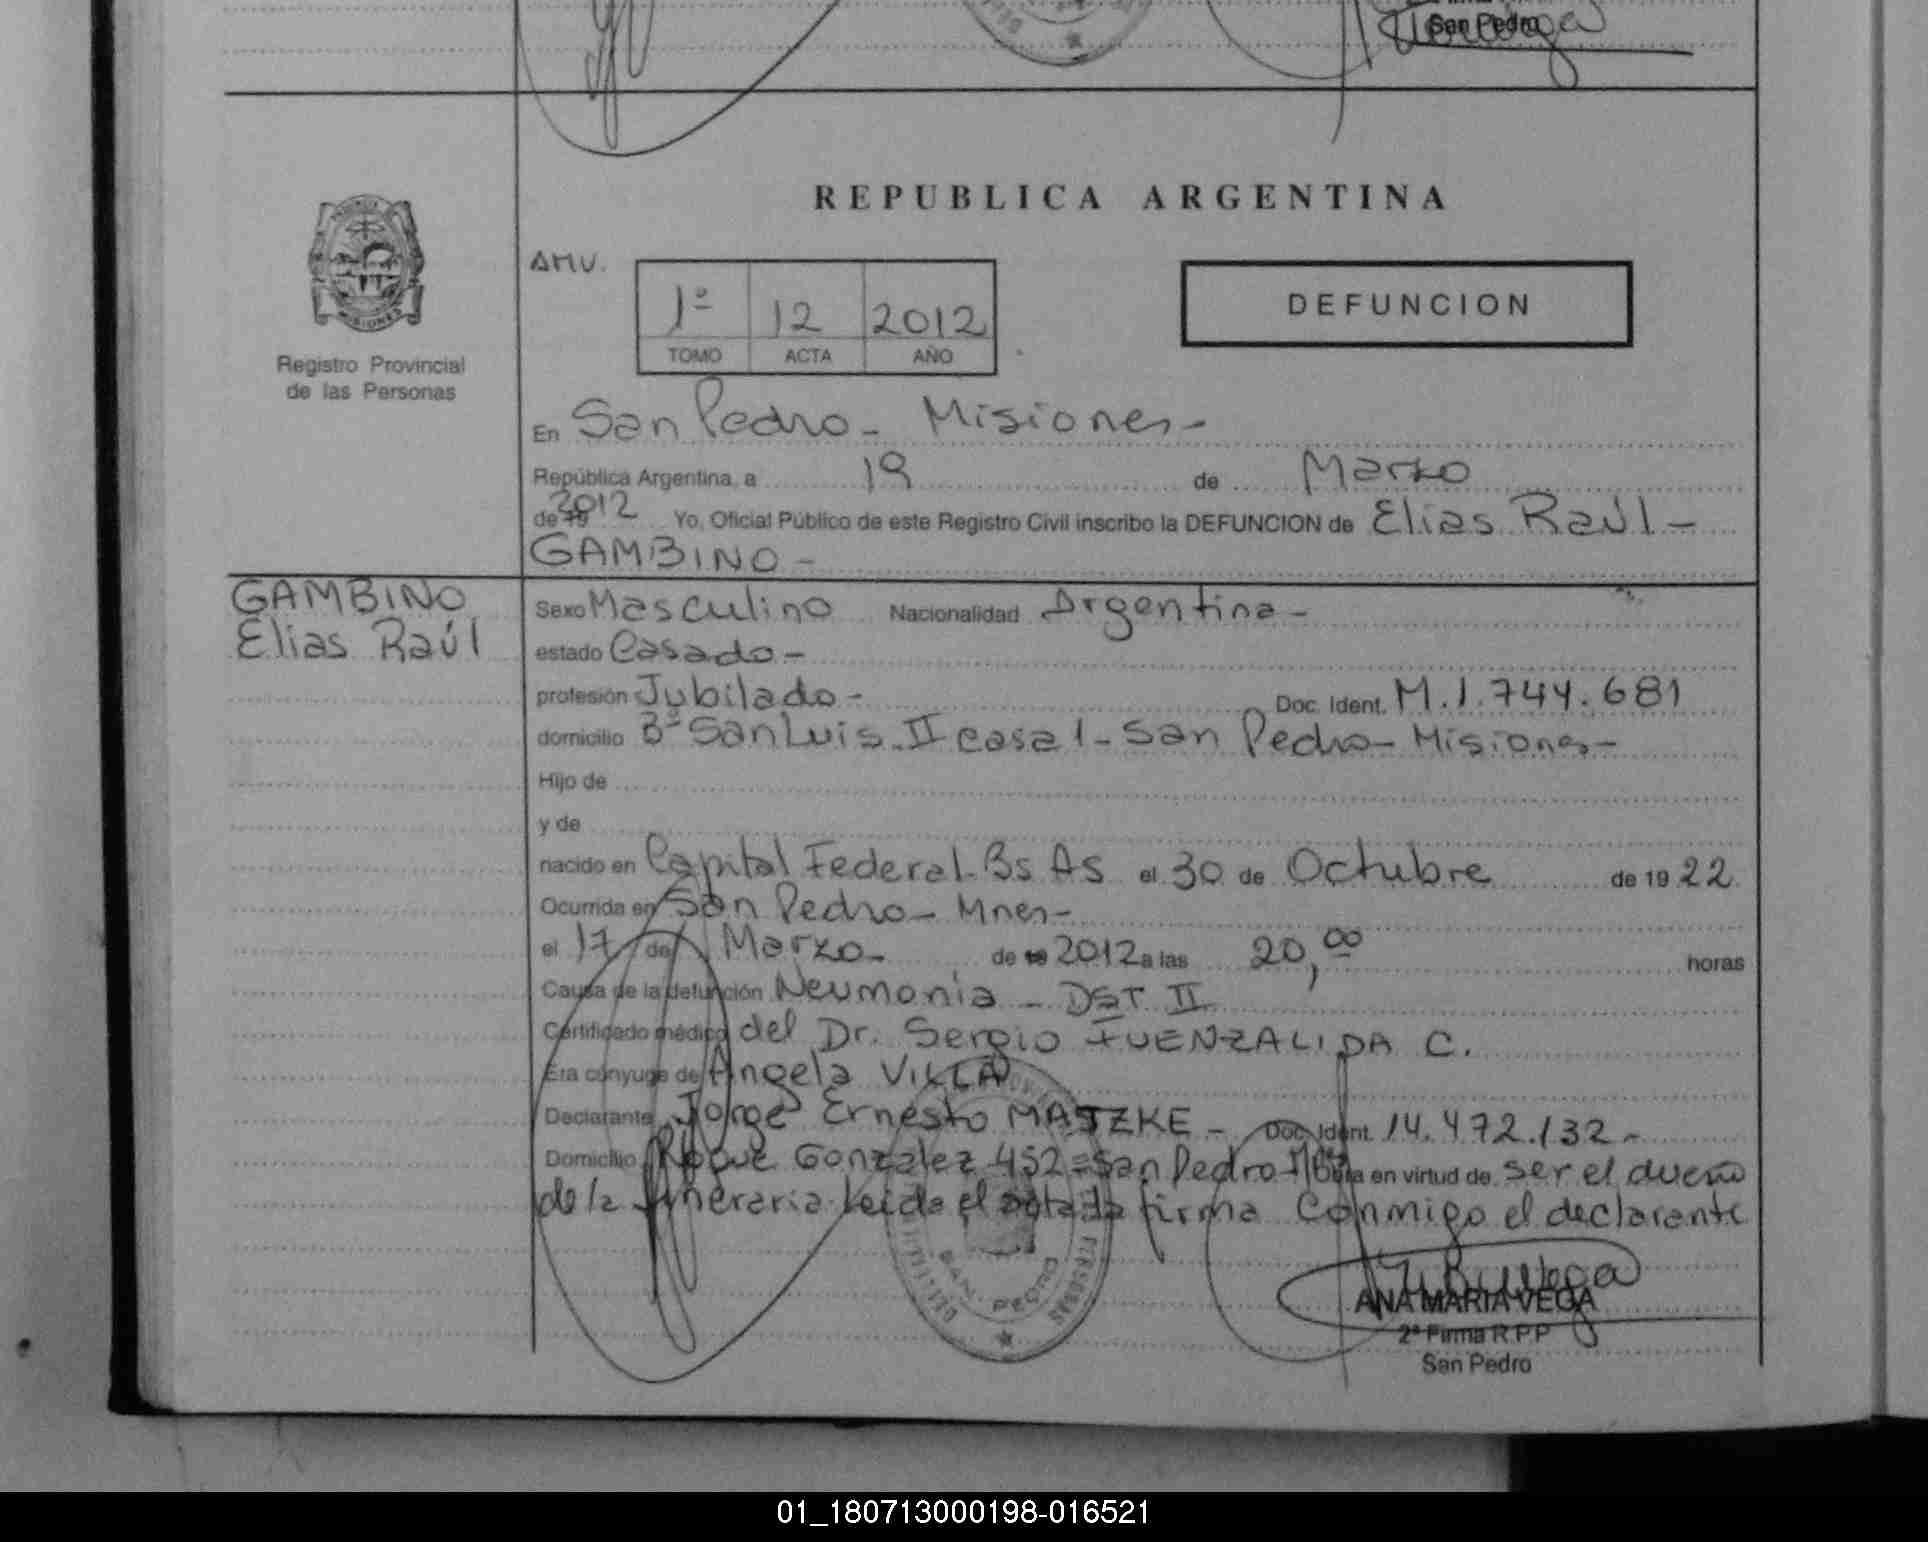 San Pedro
REPUBLICA ARGENTINA
AMV.
1º 12 2012
TOMO ACTA AÑO
DEFUNCION
MISIONES
Registro Provincial
de las Personas
En San Pedro - Misiones -
República Argentina, a 19 de Marzo
de 19 2012 Yo, Oficial Público de este Registro Civil inscribo la DEFUNCION de Elias Raúl -
GAMBINO -
GAMBINO
Elias Raúl
Sexo Masculino Nacionalidad Argentina -
estado Casado -
profesión Jubilado - Doc. Ident. M.1.744.681
domicilio Bº San Luis II casa 1 - San Pedro - Misiones -
Hijo de
y de
nacido en Capital Federal - Bs As el 30 de Octubre de 1922
Ocurrida en San Pedro - Mnes -
el 17 de Marzo - de 19 2012 a las 20,00 horas
Causa de la defunción Neumonia - DBT II
Certificado médico del Dr. Sergio FUENZALIDA C.
Era cónyuge de Angela VILLA
Declarante Jorge Ernesto MATZKE - Doc. Ident. 14.472.132 -
Domicilio Roque Gonzalez 452 - San Pedro - Mnes Obra en virtud de ser el dueño
de la funeraria leida el acta la firma conmigo el declarante
SAN PEDRO
ANA MARIA VEGA
2ª Firma R.P.P
San Pedro
01_180713000198-016521